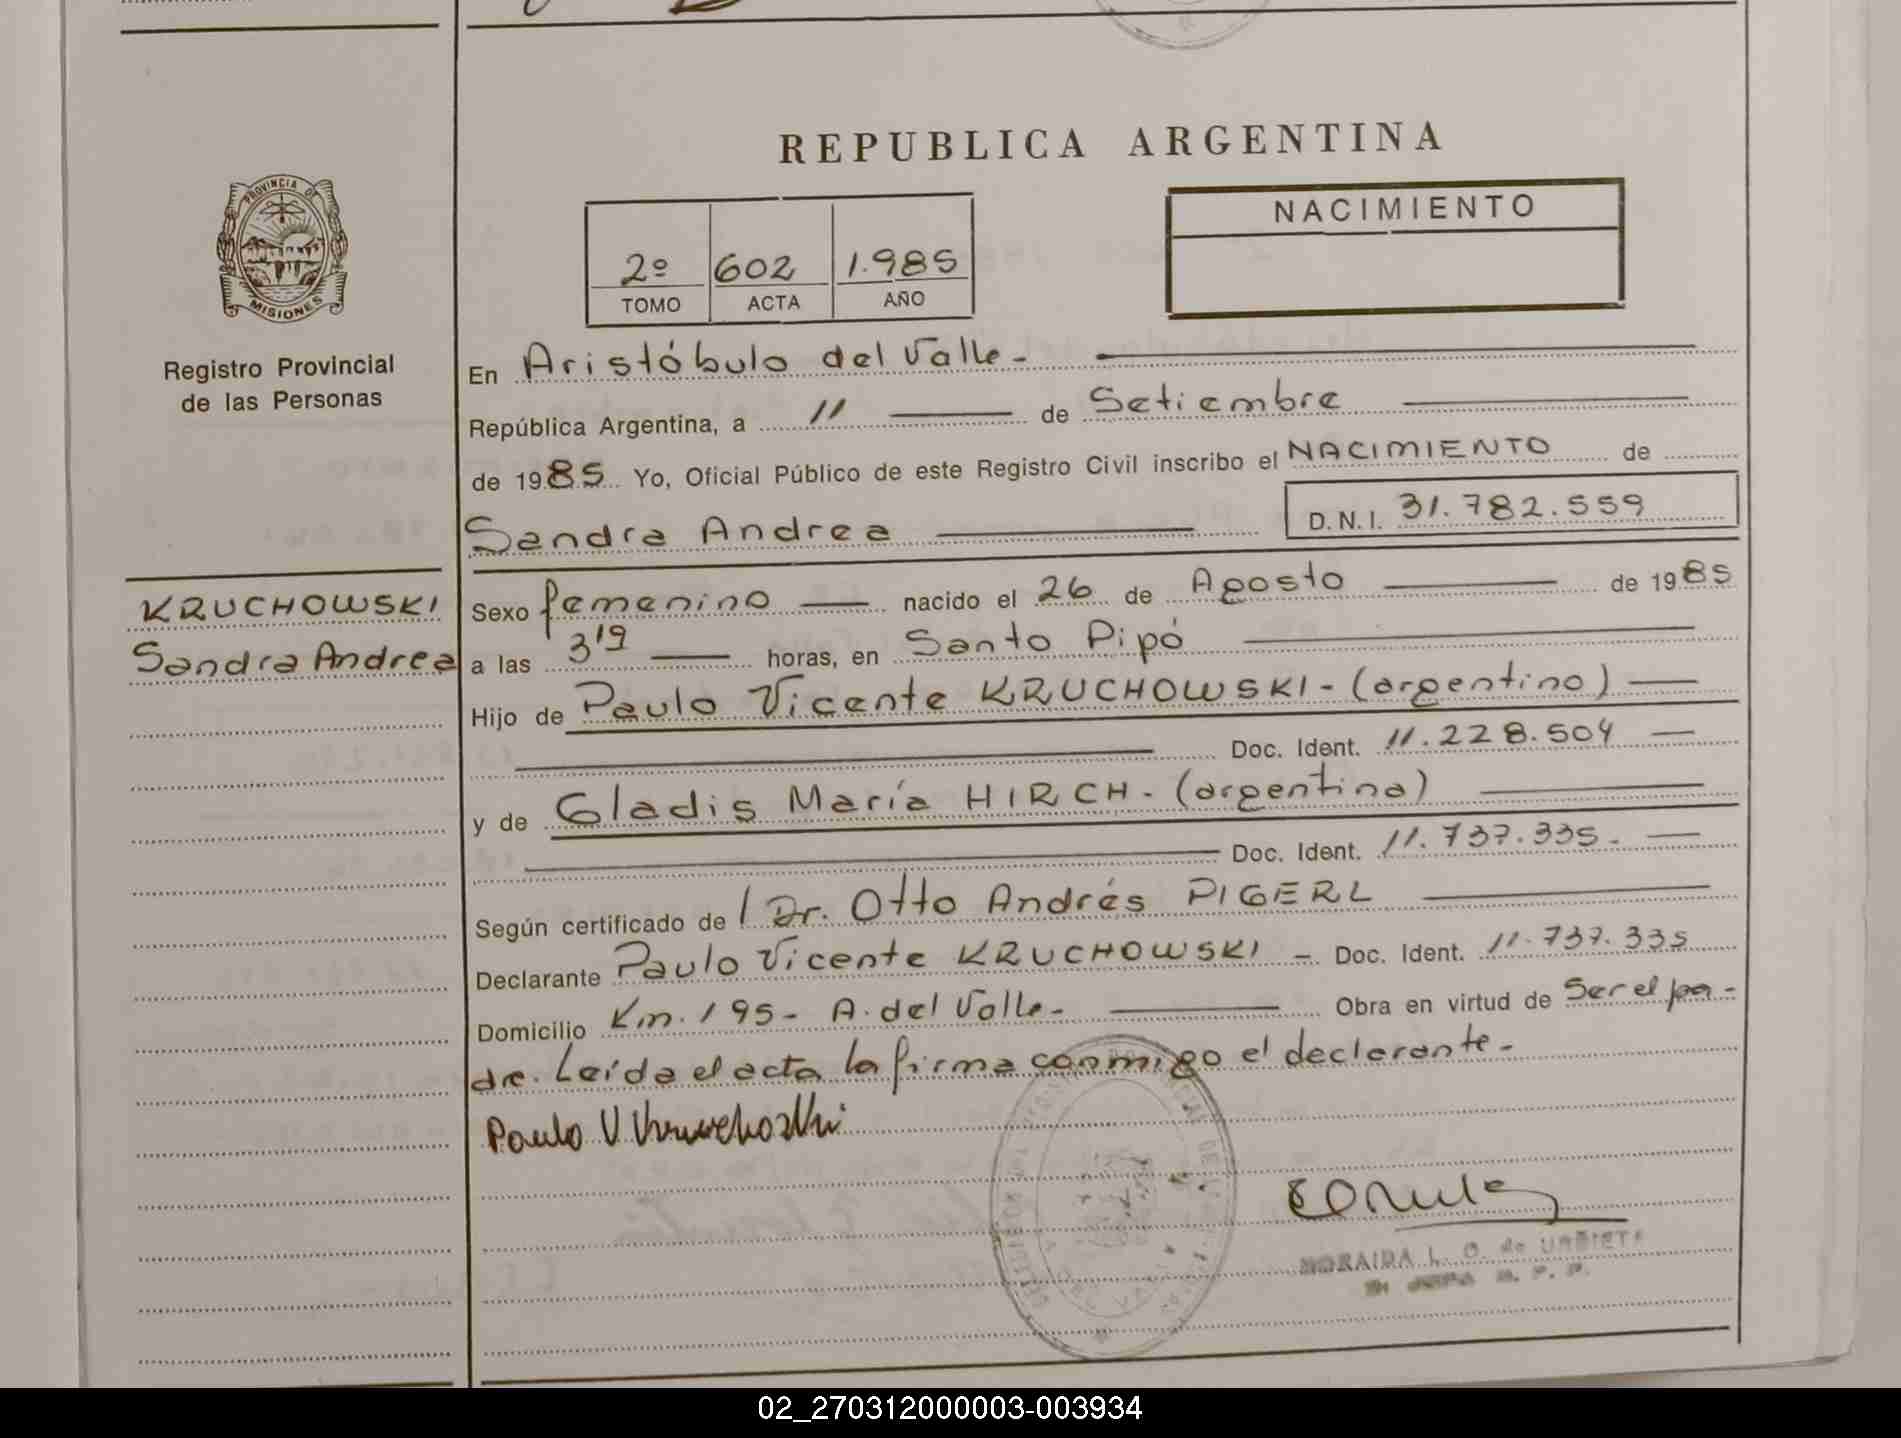 REPUBLICA ARGENTINA
PROVINCIA DE
MISIONES
Registro Provincial
de las Personas
2º 602 1.985
TOMO ACTA AÑO
NACIMIENTO
En Aristóbulo del Valle -
República Argentina, a 11 de Setiembre
de 1985 Yo, Oficial Público de este Registro Civil inscribo el NACIMIENTO de
Sandra Andrea D.N.I. 31.782.559
KRUCHOWSKI
Sandra Andrea
Sexo femenino nacido el 26 de Agosto de 1985
a las 3¹⁹ horas, en Santo Pipó
Hijo de Paulo Vicente KRUCHOWSKI - (argentino)
Doc. Ident. 11.228.504
y de Gladis María HIRCH - (argentina)
Doc. Ident. 11.737.335.-
Según certificado de / Dr. Otto Andrés PIGERL
Declarante Paulo Vicente KRUCHOWSKI - Doc. Ident. 11.737.335
Domicilio Km. 195 - A. del Valle - Obra en virtud de Ser el pa-
dre. Leída el acta la firma conmigo el declarante -
Paulo V
NORAIDA L. O. de
02_270312000003-003934